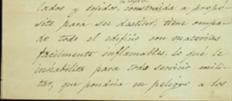 cados y tejidos, construida a propó-
sito para ser destino, tiene ocupa-
do todo el edificio con materias
fácilmente inflamables, lo que le
inhabilita para todo servicio mili-
tar, que pondría en peligro a los